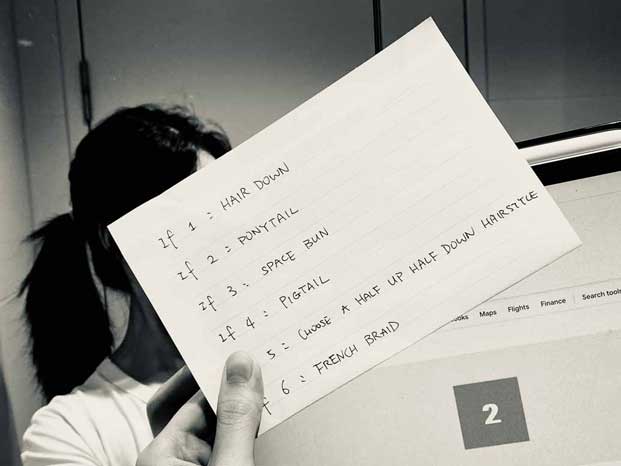 If 1 : HAIR DOWN
If 2 : PONYTAIL
If 3 : SPACE BUN
If 4 : PIGTAIL
5 : CHOOSE A HALF UP HALF DOWN HAIRSTYLE
f 6 : FRENCH BRAID
Maps Flights Finance Search tools
2